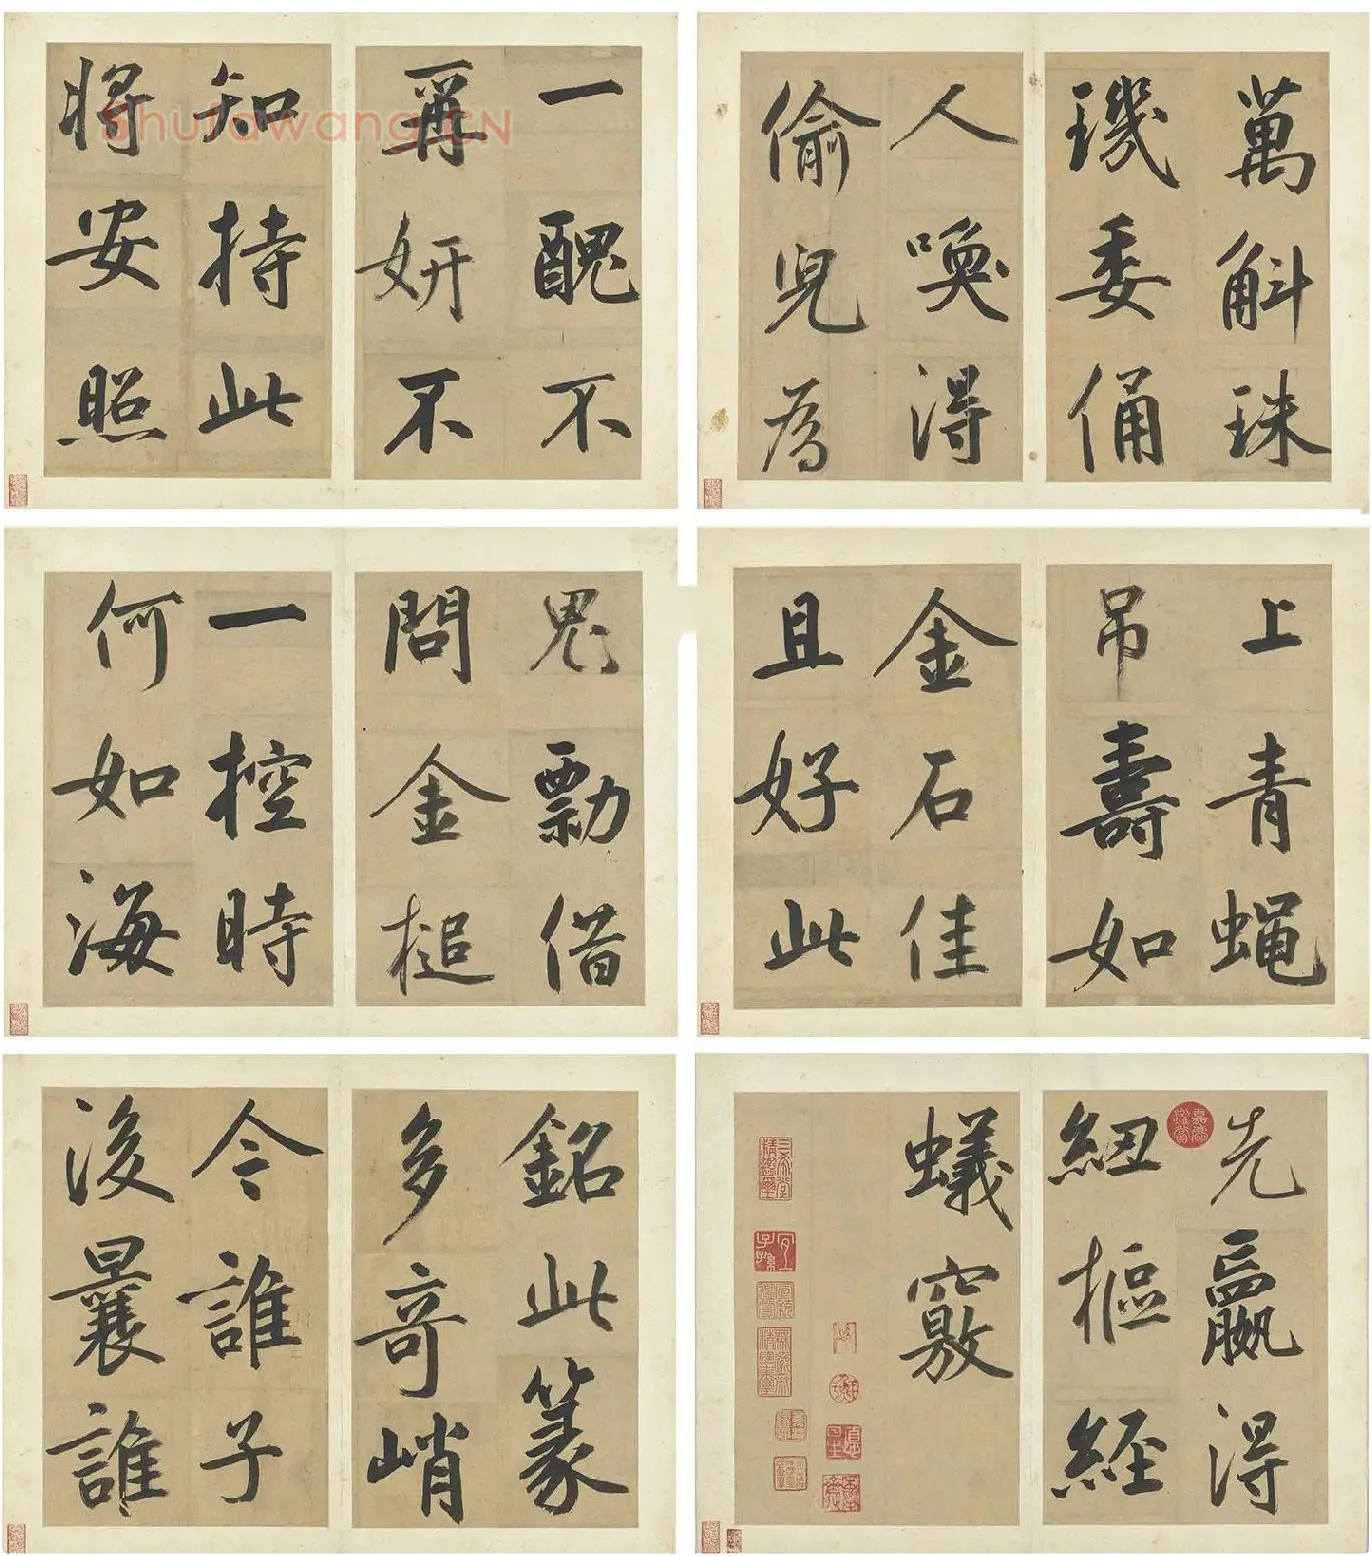 Shufawang.CN
一醜不
再妍不
知持此
將安照
萬斛珠
璣委俑
人喚得
偷兒為
鬼勡借
問金槌
一控時
何如海
上青蠅
吊壽如
金石佳
且好此
銘此篆
多奇峭
今誰子
後曩誰
先嬴得
紐樞經
蟻竅